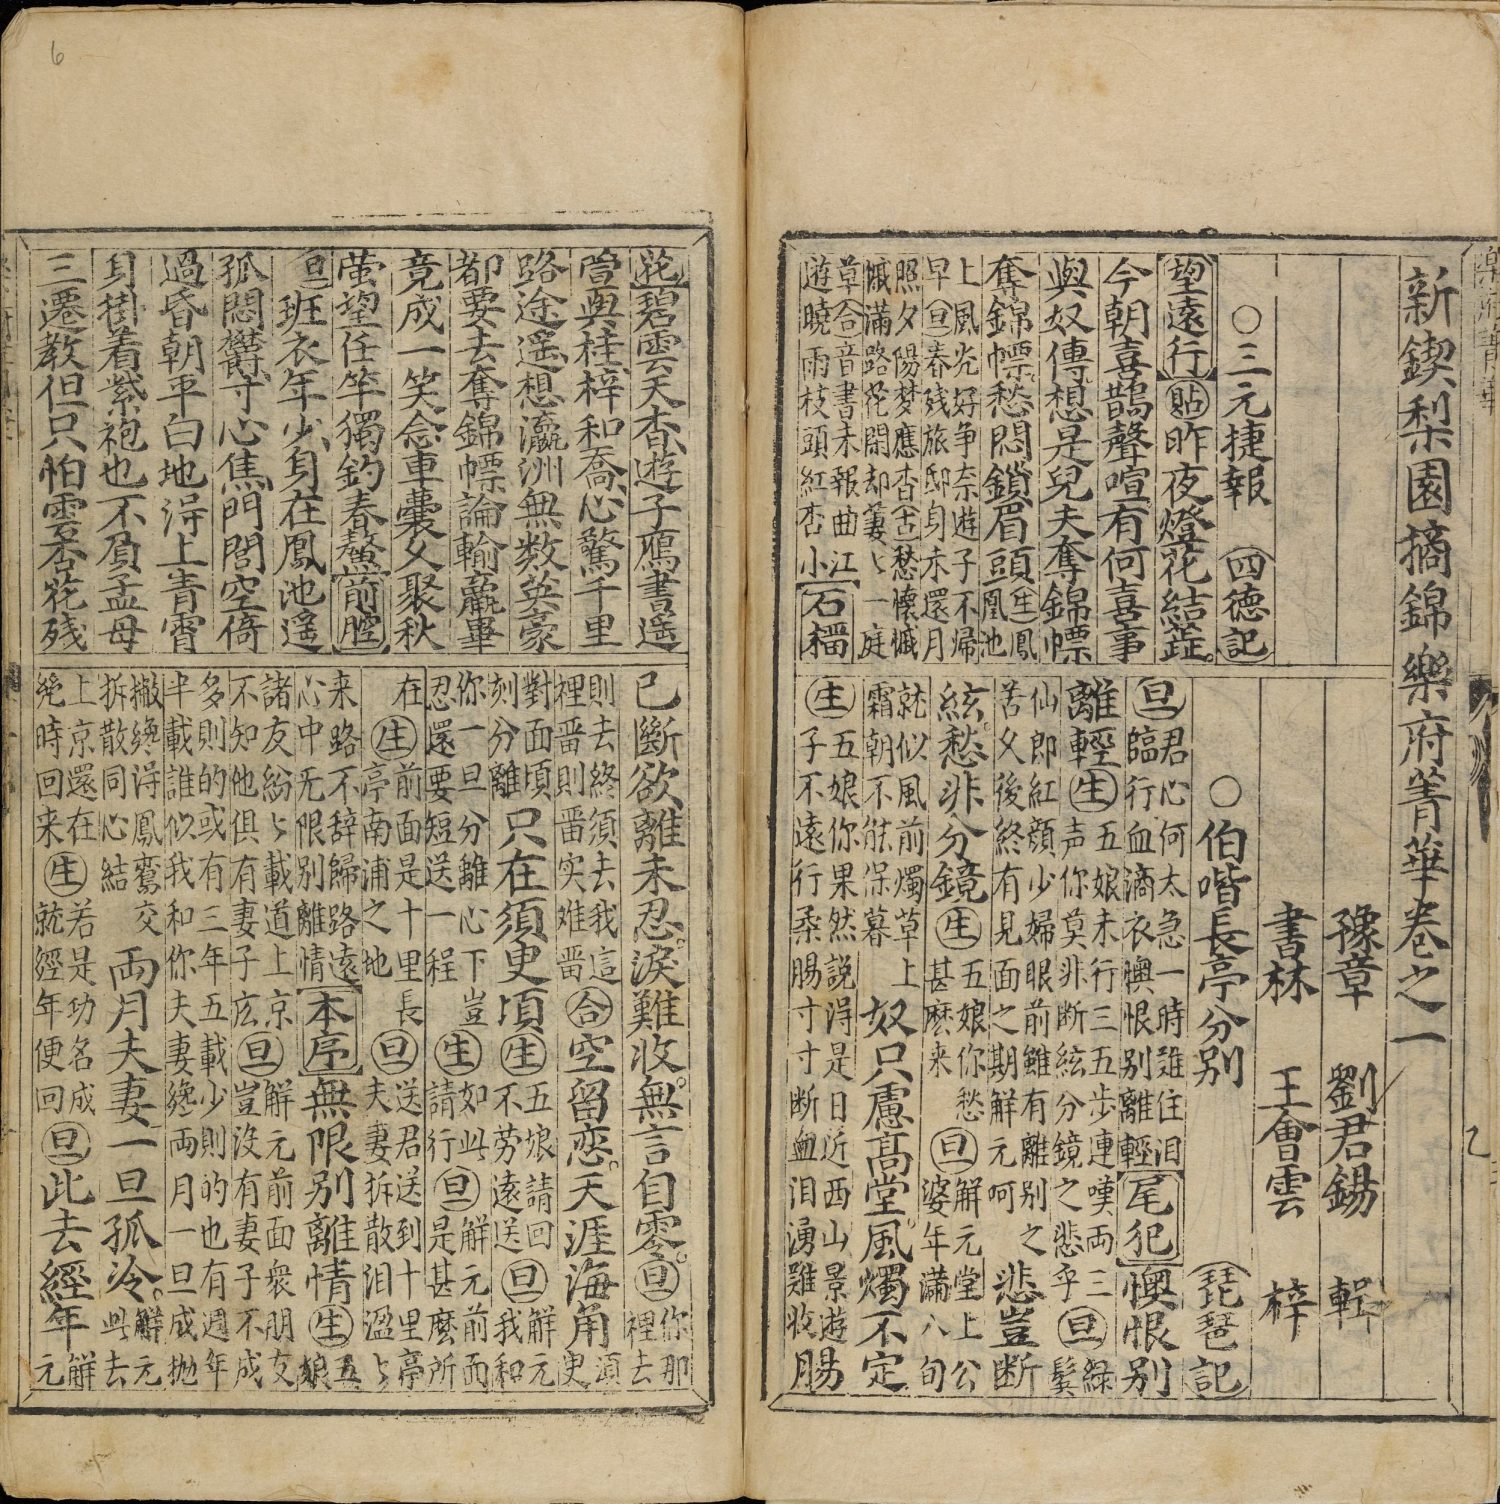 新鍥梨園摘錦樂府菁華卷之一
豫章 劉君錫 輯
書林 王會雲 梓
○三元捷報 四德記
望遠行 貼 昨夜燈花結蕋
今朝喜鵲聲喧有何喜事
與奴傳想是兒夫奪錦幖
奪錦幖愁悶鎖眉頭 生 鳳
凰池
上風光好争奈遊子不歸
早旦春残旅邸身未還月
照夕陽梦應杳占愁懷慽
慽滿路花閑却萋〻一庭
草合音書未報曲江
遊曉雨枝頭紅杏小 石榴
○伯喈長亭分别 琵琶記
旦 君心何太急一時難住泪
臨行血滴衣懊恨别離輕 尾犯 懊恨别
離輕 生 五娘未行三五步連嘆两三
声你莫非断絃分鏡之悲乎 旦 綠
鬓
仙郎紅顔少婦眼前雖有離别之
苦久後終有見面之期解元呵 悲豈断
絃愁非分鏡 生 五娘你愁
甚麽来 旦 解元堂上公
婆年滿八旬
就似風前燭草上
霜朝不能保暮 奴只慮高堂風燭不定
生 五娘你果然説淂是日近西山景遊
子不遠行柔腸寸寸断血泪湧難收 腸
花碧雲天杳遊子鴈書遥
萱與桂梓和喬心驚千里
路途遥想瀛洲無数英豪
都要去奪錦幖論輸贏畢
竟成一笑念車囊久聚秋
螢望任竿獨釣春鰲 前腔
旦 班衣年少身在鳳池遥
孤悶欝守心焦門閭空倚
過昏朝平白地淂上青霄
身掛着紫袍也不負孟母
三遷教但只怕雲杏花残
已斷欲離未忍淚難收無言自零 旦 你那
裡去
則去終須去我這
裡畨則畨实难畨 合 空留恋天涯海角 須
臾
對面頃
刻分離 只在須臾頃 生 五娘請回
不劳遠送 旦 解元
我和
你一旦分離心下豈
忍還要短送一程 生 如此
請行 旦 解元前面
是甚麽所
在 生 前面是十里長
亭南浦之地 旦 送君送到十里亭
夫妻拆散泪盈〻
来路不辞歸路遠
心中无限别離情 本序 無限别離情 生 五
娘
諸友紛〻載道上京
不知他俱有妻子庅 旦 解元前面衆朋友
豈没有妻子不成
多則的或有三年五載少則的也有週年
半載誰似我和你夫妻纔两月一旦成抛
撇纔淂鳳鸞交
拆散同心結 两月夫妻一旦孤冷 解元
此去
上京還在
時回来 生 若是功名成
就經年便回 旦 此去經年 解
元